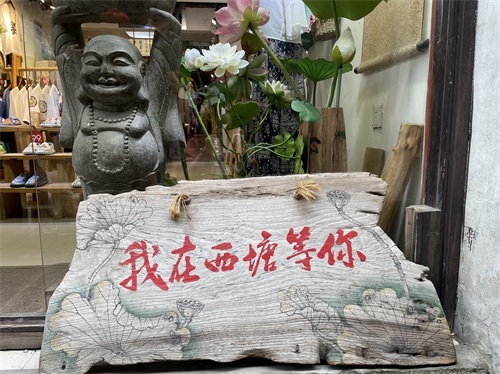 我在西塘等你